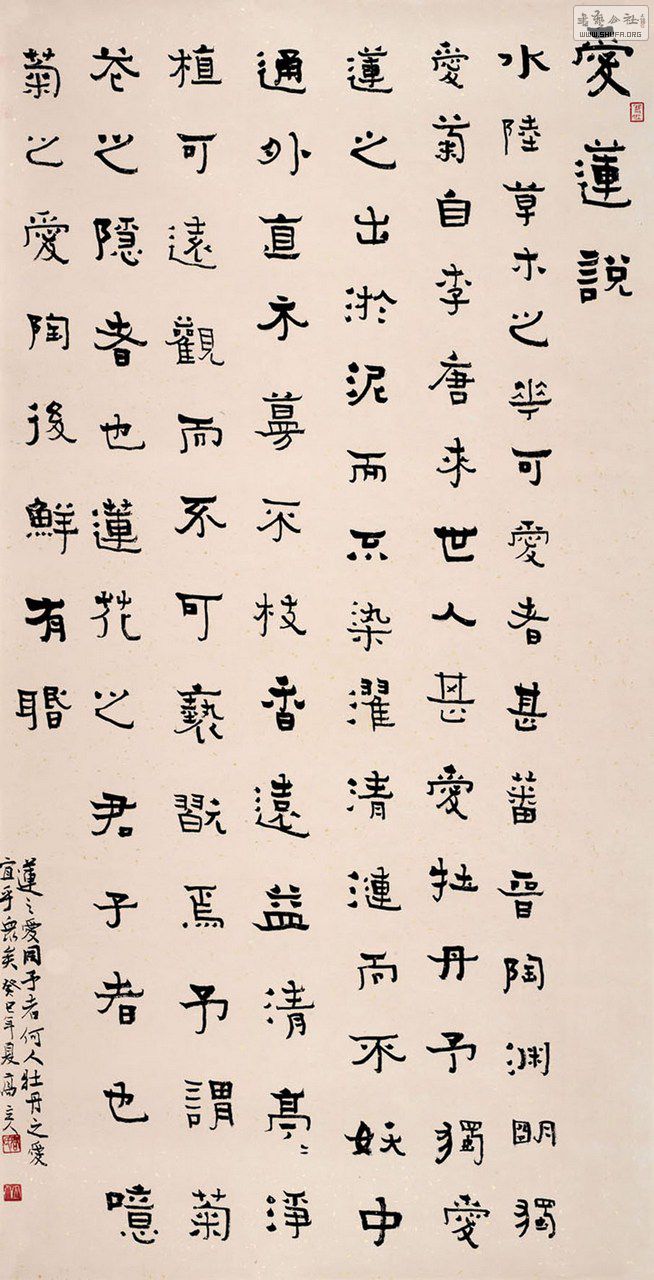 愛蓮說
水陸草木之華可愛者甚蕃晉陶淵明獨
愛菊自李唐來世人甚愛牡丹予獨愛
蓮之出淤泥而不染濯清漣而不妖中
通外直不蔓不枝香遠益清亭〻淨
植可遠觀而不可褻翫焉予謂菊
花之隱者也蓮花之君子者也噫
菊之愛陶後鮮有聞
蓮〻愛同予者何人牡丹之愛
宜乎衆矣癸巳年夏高立人
書藝公社
WWW.SHUFA.ORG